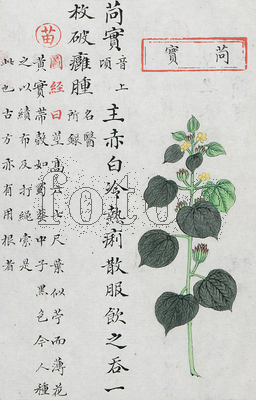 苘實
苘實音頃上主赤白冷熱痢散服飲之吞一
枚破癰腫名醫所錄
苗圖經曰莖高四五尺葉似苧而薄花
黃實蔕殼如蜀葵中子黑色今人種
之以續布及打繩索是
此也古方亦有用根者
foto